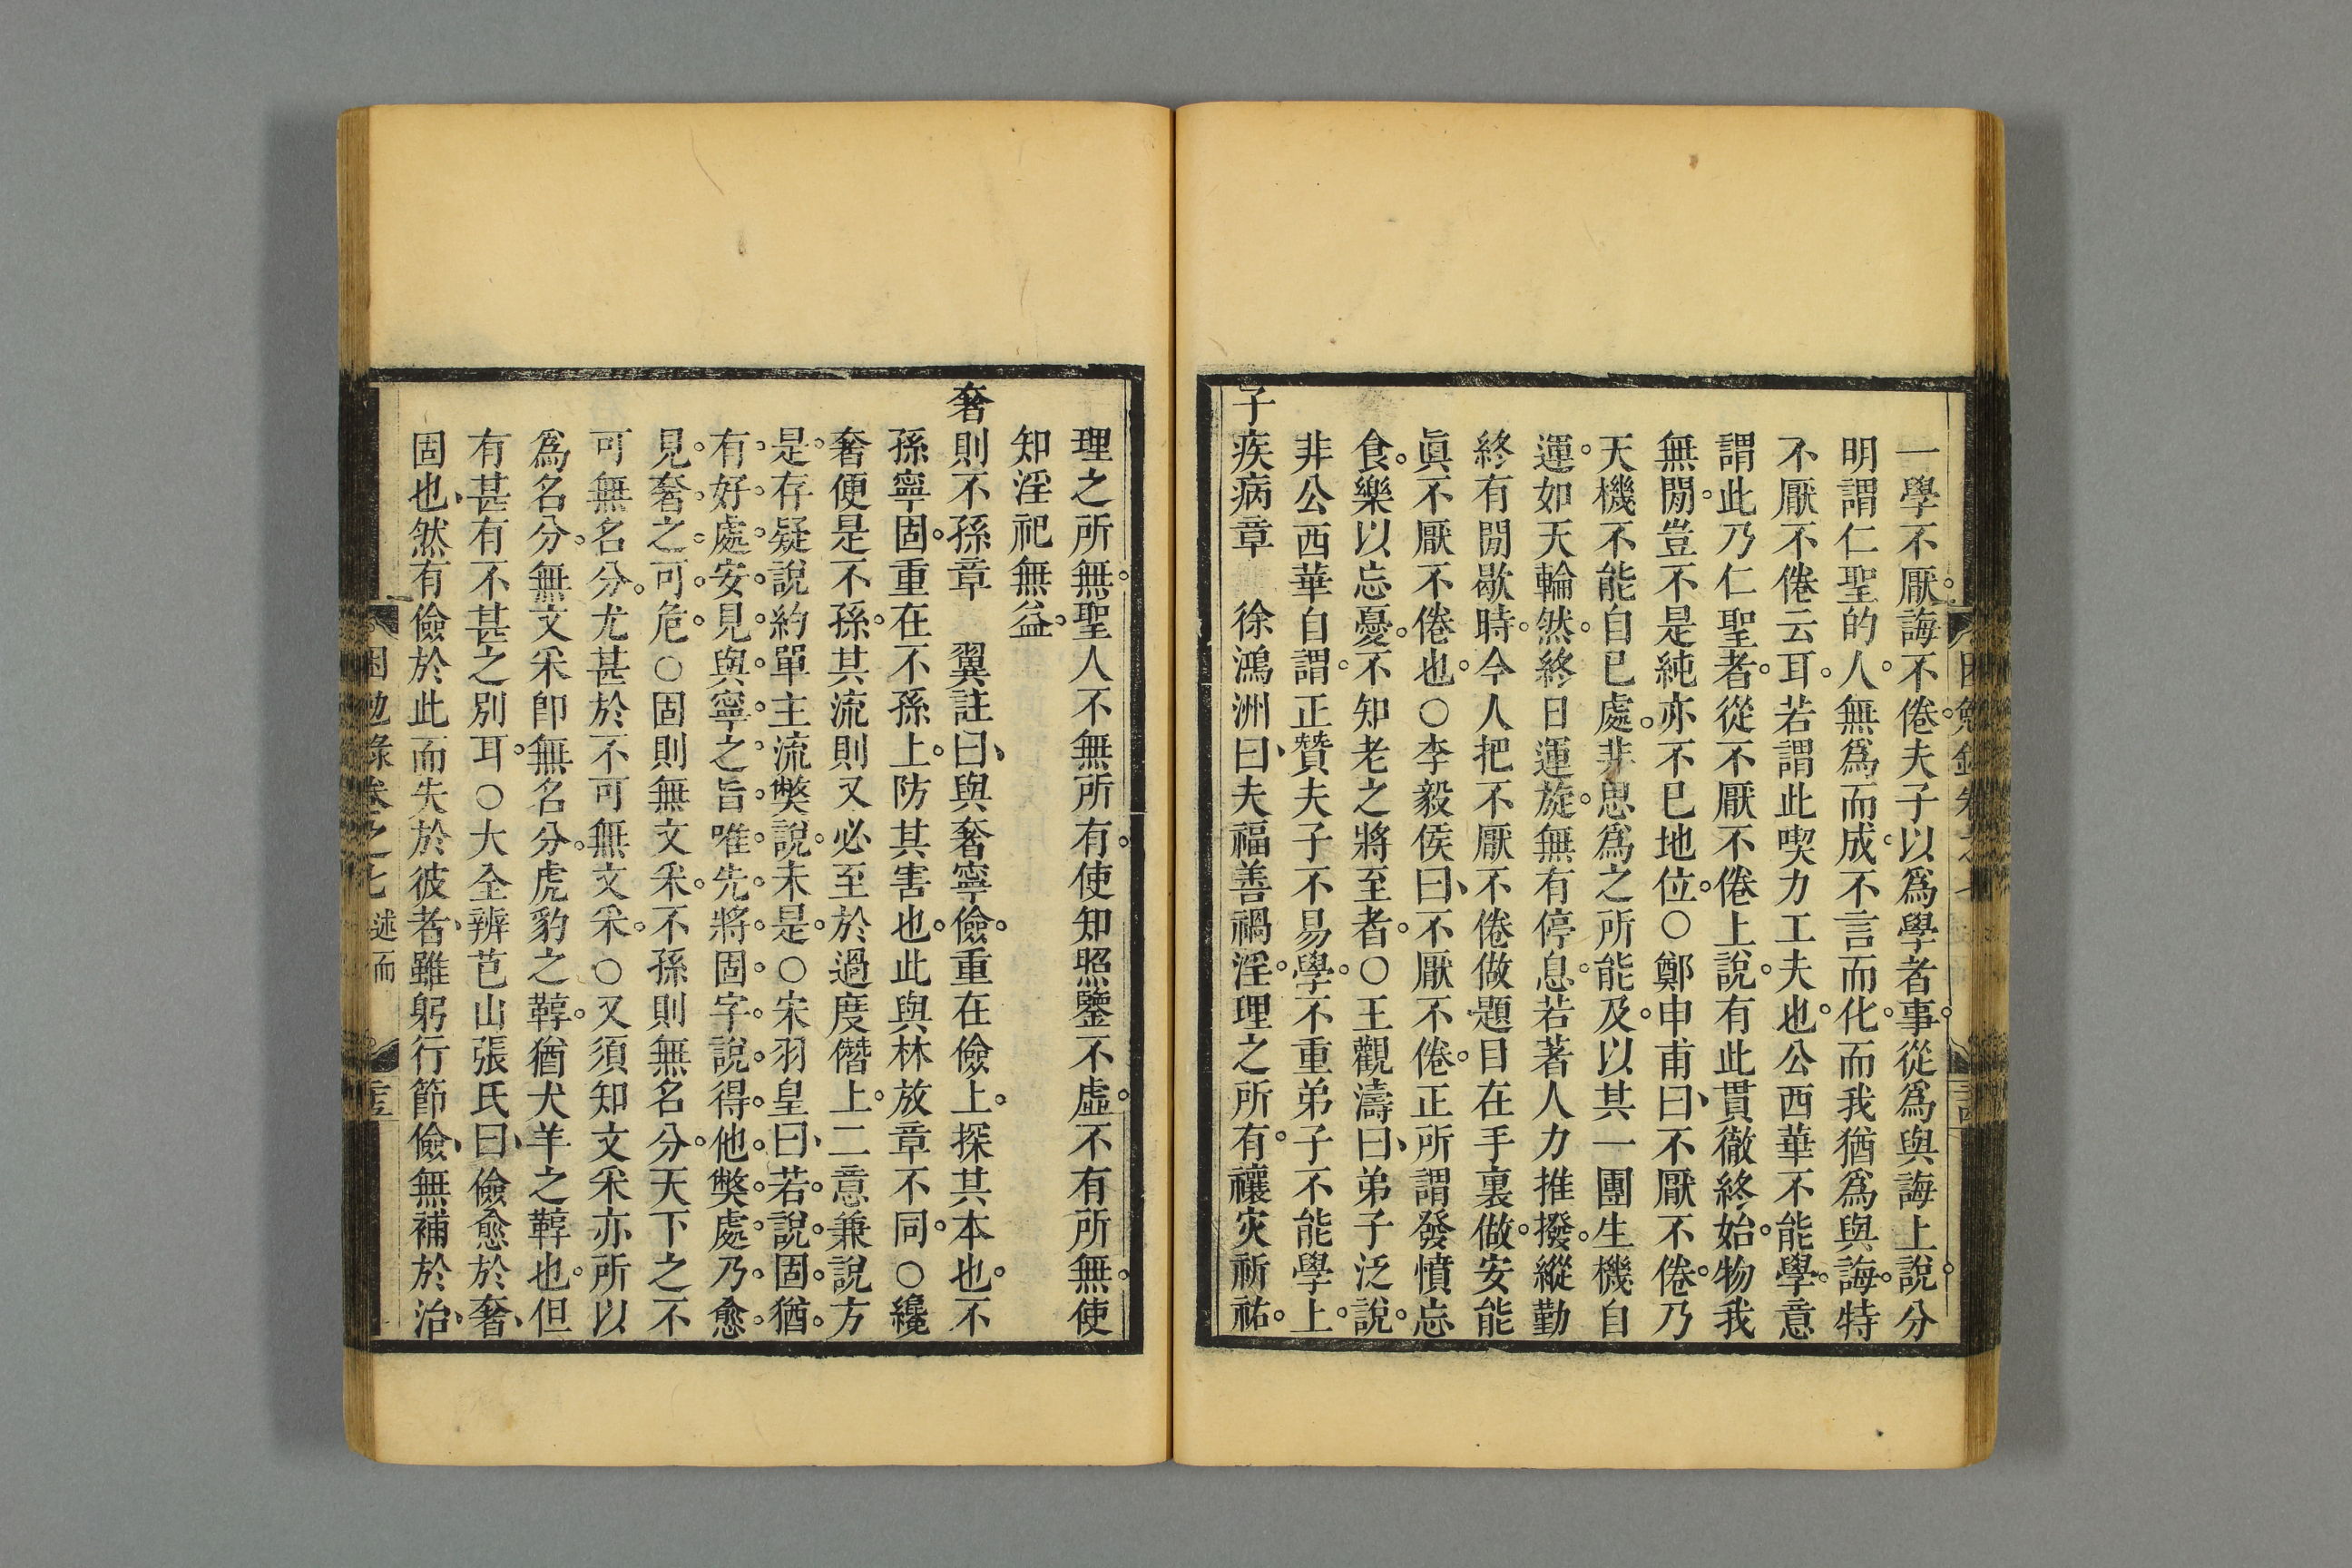 一學不厭誨不倦夫子以爲學者事從爲與誨上說分
明謂仁聖的人無爲而成不言而化而我猶爲與誨特
不厭不倦云耳若謂此喫力工夫也公西華不能學意
謂此乃仁聖者從不厭不倦上說有此貫徹終始物我
無閒豈不是純亦不已地位○鄭申甫曰不厭不倦乃
天機不能自已處非思爲之所能及以其一團生機自
運如天輪然終日運旋無有停息若著人力推撥縱勤
終有閒歇時今人把不厭不倦做題目在手裏做安能
眞不厭不倦也○李毅侯曰不厭不倦正所謂發憤忘
食樂以忘憂不知老之將至者○王觀濤曰弟子泛說
非公西華自謂正贊夫子不易學不重弟子不能學上
子疾病章　徐鴻洲曰夫福善禍淫理之所有禳灾祈祐
理之所無聖人不無所有使知照鑒不虛不有所無使
知淫祀無益
奢則不孫章　翼註曰與奢寧儉重在儉上探其本也不
孫寧固重在不孫上防其害也此與林放章不同○纔
奢便是不孫其流則又必至於過度僭上二意兼說方
是存疑說約單主流獘說未是○宋羽皇曰若說固猶
有好處安見與寧之旨唯先將固字說得他獘處乃愈
見奢之可危○固則無文采不孫則無名分天下之不
可無名分尤甚於不可無文采○又須知文采亦所以
爲名分無文采卽無名分虎豹之鞟猶犬羊之鞟也但
有甚有不甚之別耳○大全辨芑山張氏曰儉愈於奢
固也然有儉於此而失於彼者雖躬行節儉無補於治
困勉錄卷之七 述而